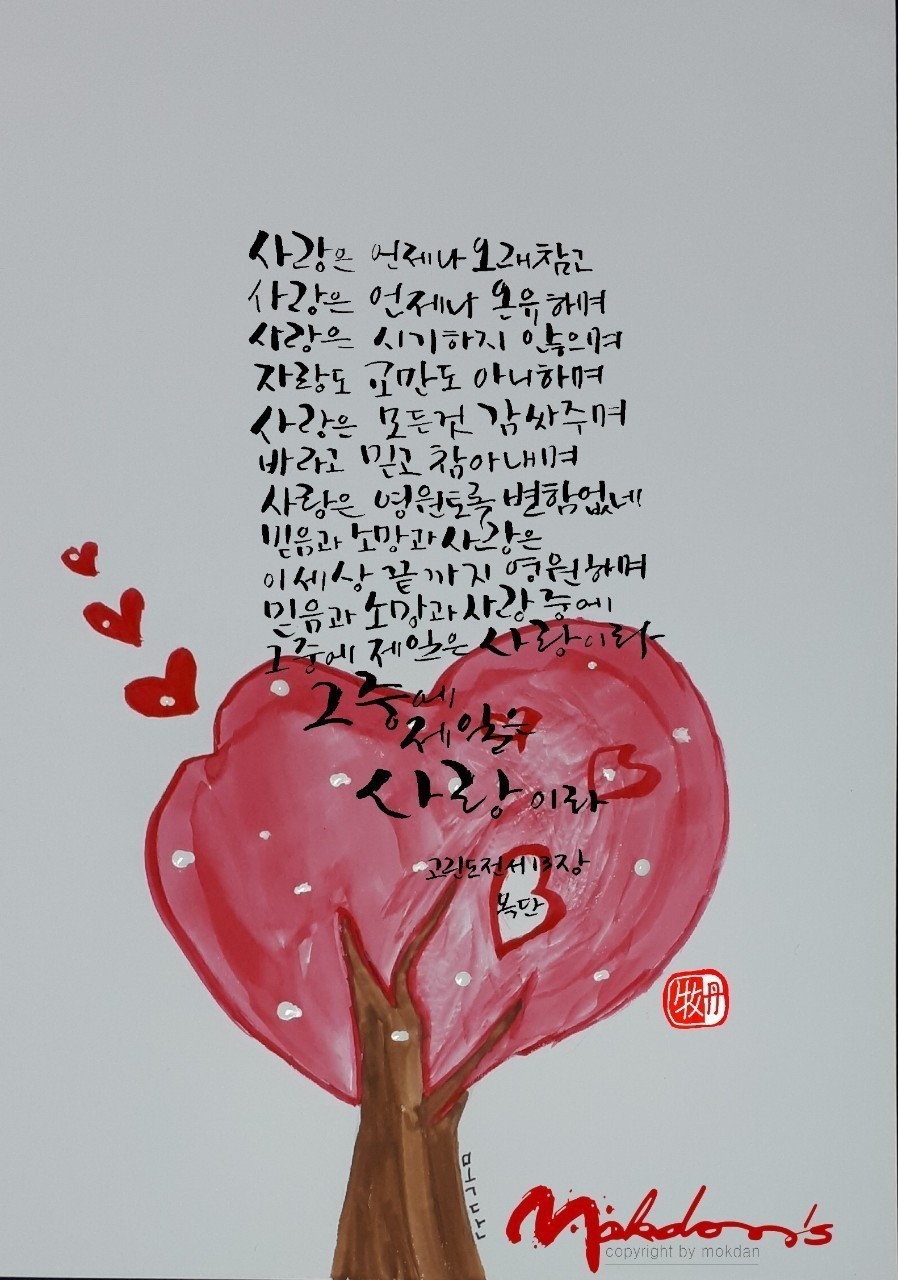 사랑은 언제나 오래참고
사랑은 언제나 온유하며
사랑은 시기하지 않으며
자랑도 교만도 아니하며
사랑은 모든것 감싸주며
바라고 믿고 참아내며
사랑은 영원토록 변함없네
믿음과 소망과 사랑은
이세상 끝까지 영원하며
믿음과 소망과 사랑중에
그중에 제일은 사랑이라
그중에
제일은
사랑이라
고린도전서13장
목단
牧丹
목단
Mokdan's
copyright by mokdan